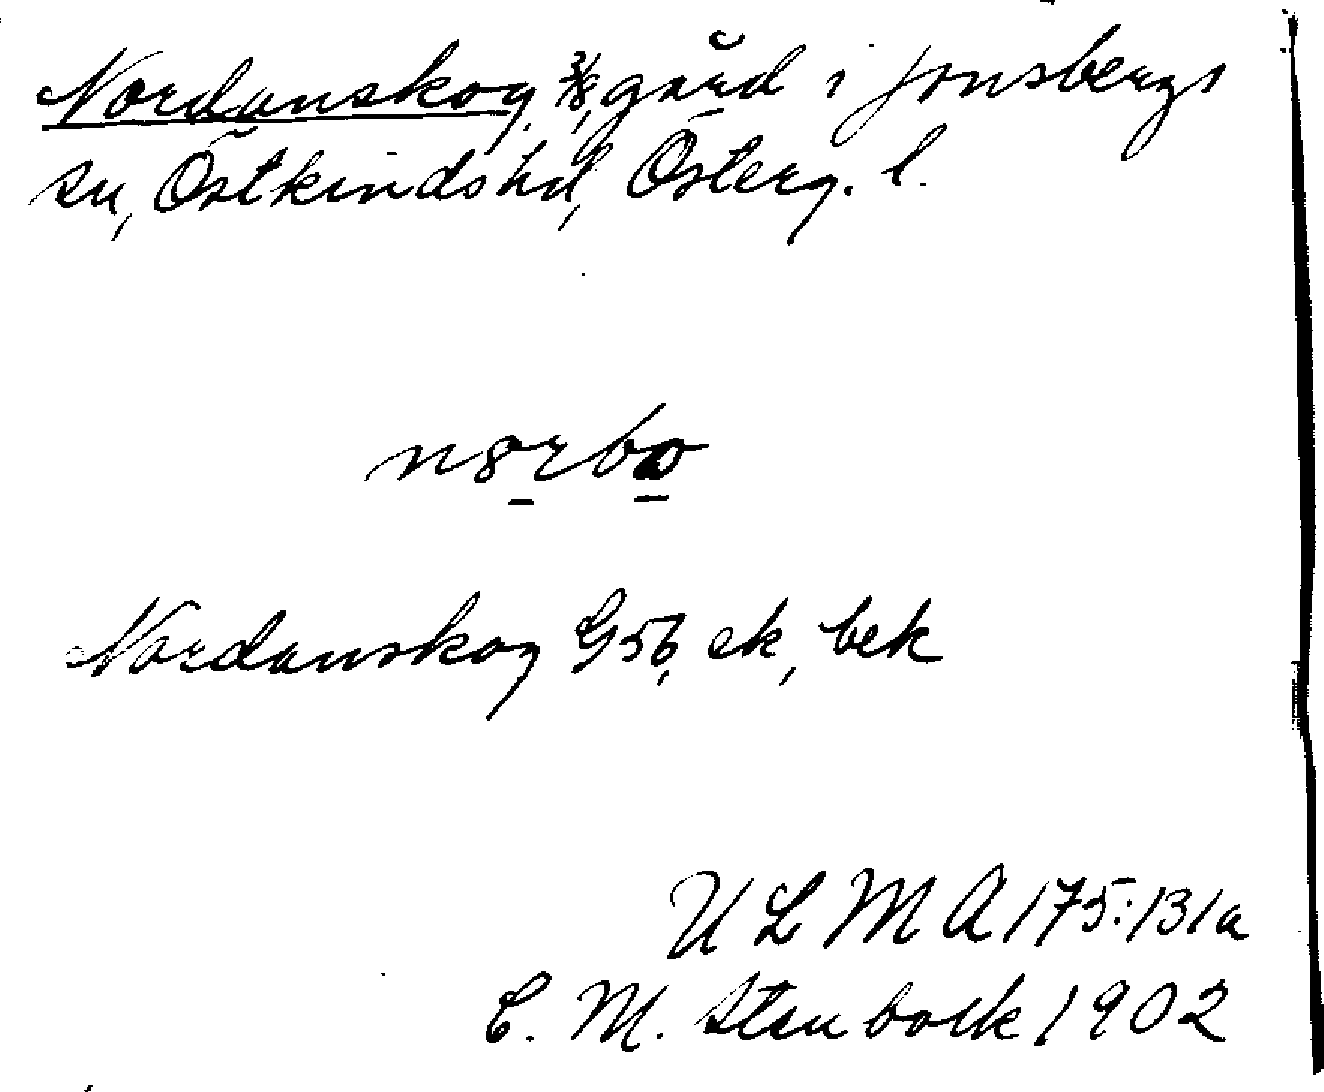 Nordanskog, 3/8 gård i Jonsbergs
sn, Östkinds hd, Österg. l.
Nordanskog G56, ek, bek
ULMA 175:131a
C. M. Stenbock 1902